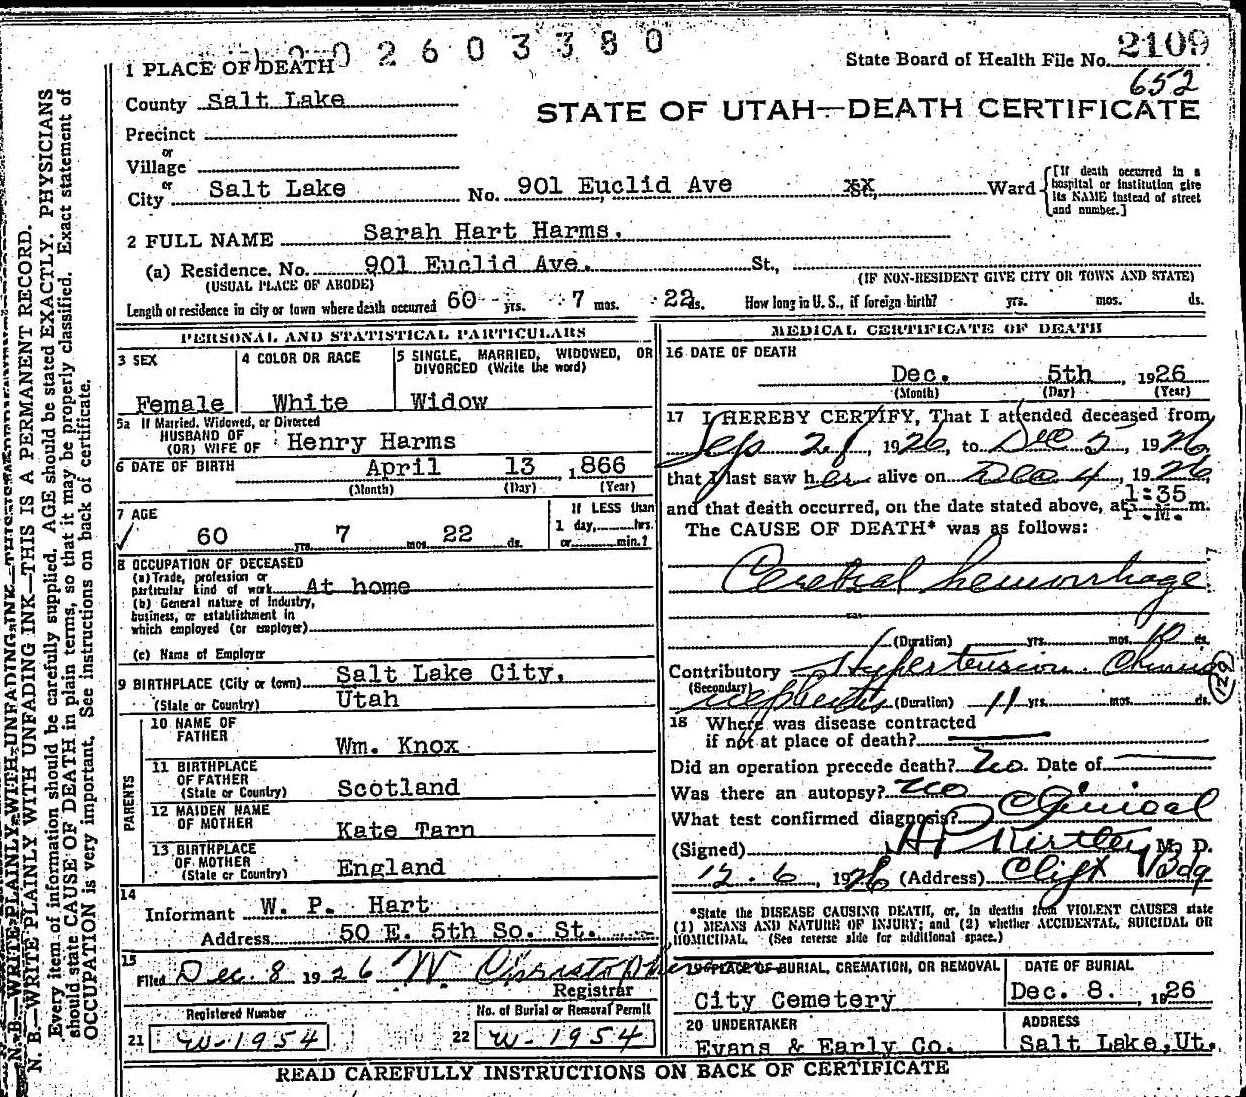 2603380
State Board of Health File No. 2109
652
1 PLACE OF DEATH
County Salt Lake
STATE OF UTAH—DEATH CERTIFICATE
Precinct
or
Village
or
City Salt Lake No. 901 Euclid Ave XX, Ward
[If death occurred in a hospital or institution give its NAME instead of street and number.]
2 FULL NAME Sarah Hart Harms.
(a) Residence. No. 901 Euclid Ave. St.,
(USUAL PLACE OF ABODE) (IF NON-RESIDENT GIVE CITY OR TOWN AND STATE)
Length of residence in city or town where death occurred 60 yrs. 7 mos. 22 ds. How long in U. S., if foreign birth? yrs. mos. ds.
PERSONAL AND STATISTICAL PARTICULARS
3 SEX
Female
4 COLOR OR RACE
White
5 SINGLE, MARRIED, WIDOWED, OR
DIVORCED (Write the word)
Widow
5a If Married, Widowed, or Divorced
HUSBAND OF
(OR) WIFE OF Henry Harms
6 DATE OF BIRTH April 13, 1866
(Month) (Day) (Year)
7 AGE
60 yrs. 7 mos. 22 ds.
If LESS than
1 day, hrs.
or min.?
8 OCCUPATION OF DECEASED
(a) Trade, profession or
particular kind of work At home
(b) General nature of Industry,
business, or establishment in
which employed (or employer)
(c) Name of Employer
9 BIRTHPLACE (City or town) Salt Lake City,
(State or Country) Utah
PARENTS
10 NAME OF
FATHER Wm. Knox
11 BIRTHPLACE
OF FATHER
(State or Country) Scotland
12 MAIDEN NAME
OF MOTHER Kate Tarn
13 BIRTHPLACE
OF MOTHER
(State or Country) England
14
Informant W. P. Hart
Address 50 E. 5th So. St.
15
Filed Dec. 8 1926 W. Christopher
Registrar
Registered Number
21 W-1954
No. of Burial or Removal Permit
22 W-1954
MEDICAL CERTIFICATE OF DEATH
16 DATE OF DEATH
Dec. 5th, 1926
(Month) (Day) (Year)
17 I HEREBY CERTIFY, That I attended deceased from
Sep 28, 1926, to Dec 5, 1926,
that I last saw her alive on Dec 4, 1926,
and that death occurred, on the date stated above, at 1:35 P.M. m.
The CAUSE OF DEATH* was as follows:
Cerebral hemorrhage
(Duration) yrs. mos. 10 ds.
Contributory Hypertension. Chronic
(Secondary) nephritis (Duration) 11 yrs. mos. ds.
129
18 Where was disease contracted
if not at place of death?
Did an operation precede death? No. Date of
Was there an autopsy? No
What test confirmed diagnosis? Clinical
(Signed) HP Kirtley M. D.
12-6, 1926 (Address) Clift Bdg
*State the DISEASE CAUSING DEATH, or, in deaths from VIOLENT CAUSES state
(1) MEANS AND NATURE OF INJURY; and (2) whether ACCIDENTAL, SUICIDAL OR
HOMICIDAL. (See reverse side for additional space.)
19 PLACE OF BURIAL, CREMATION, OR REMOVAL
City Cemetery
DATE OF BURIAL
Dec. 8., 1926
20 UNDERTAKER
Evans & Early Co.
ADDRESS
Salt Lake, Ut.
READ CAREFULLY INSTRUCTIONS ON BACK OF CERTIFICATE
N. B.—WRITE PLAINLY WITH UNFADING INK—THIS IS A PERMANENT RECORD.
Every item of information should be carefully supplied. AGE should be stated EXACTLY. PHYSICIANS
should state CAUSE OF DEATH in plain terms, so that it may be properly classified. Exact statement of
OCCUPATION is very important. See instructions on back of certificate.